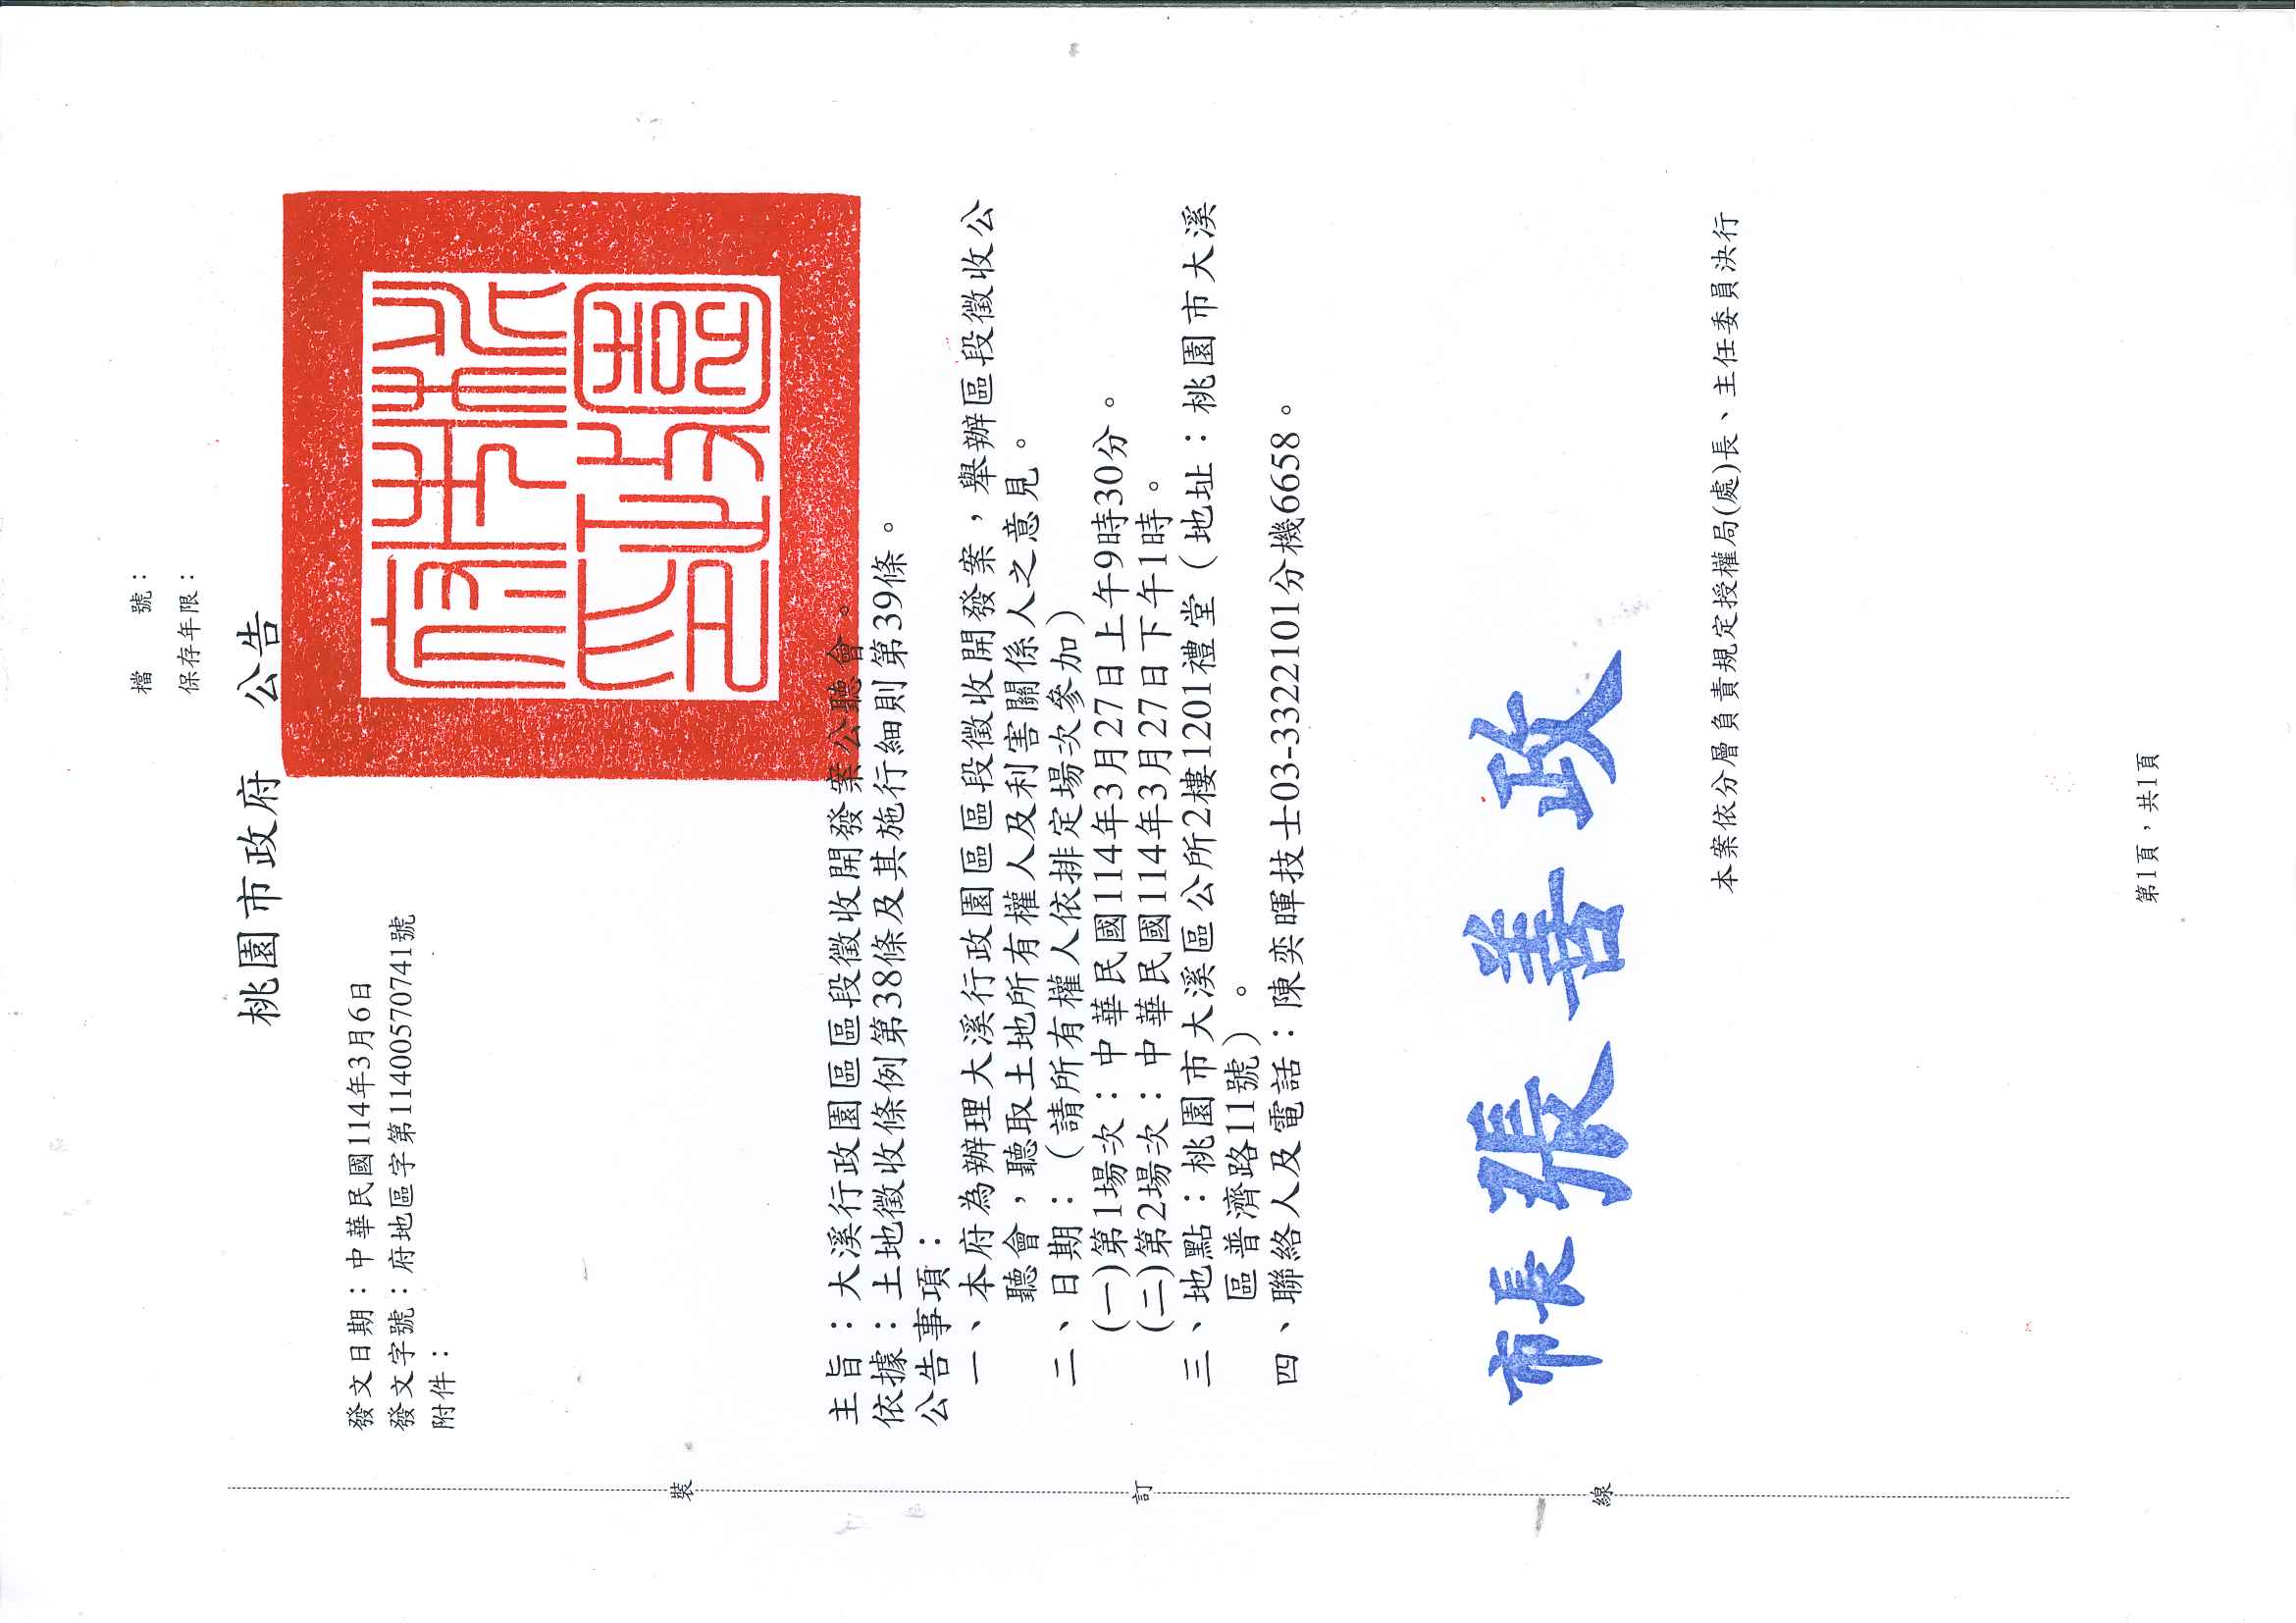 檔　　號：
保存年限：
桃園市政府　公告
發文日期：中華民國114年3月6日
發文字號：府地區字第11400570741號
附件：
主旨：大溪行政園區區段徵收開發案公聽會。
依據：土地徵收條例第38條及其施行細則第39條。
公告事項：
一、本府為辦理大溪行政園區區段徵收開發案，舉辦區段徵收公
聽會，聽取土地所有權人及利害關係人之意見。
二、日期：（請所有權人依排定場次參加）
(一)第1場次：中華民國114年3月27日上午9時30分。
(二)第2場次：中華民國114年3月27日下午1時。
三、地點：桃園市大溪區公所2樓1201禮堂（地址：桃園市大溪
區普濟路11號）。
四、聯絡人及電話：陳奕暉技士03-3322101分機6658。
市長張善政
本案依分層負責規定授權局(處)長、主任委員決行
裝
訂
線
第1頁，共1頁